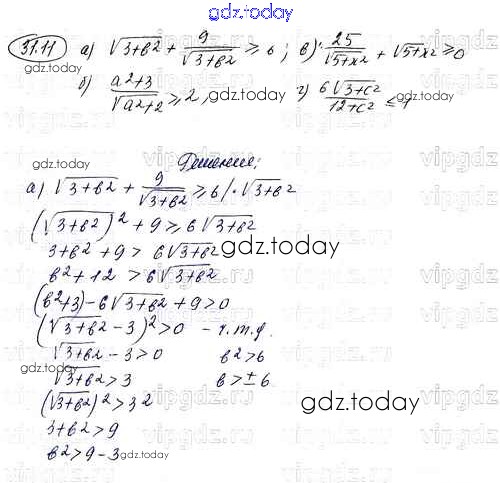 gdz.today
31.11 а) √3+в² + 9/√3+в² ≥ 6; в) 25/√5+x² + √5+x² ≥ 0
gdz.today
б) a²+3/√a²+2 ≥ 2, г) 6√3+c²/12+c² ≤ 1
gdz.today
gdz.today
Решение:
а) √3+в² + 9/√3+в² ≥ 6 /·√3+в²
(√3+в²)² + 9 ≥ 6√3+в²
3+в² + 9 > 6√3+в²
gdz.today
в² + 12 > 6√3+в²
(в²+3) - 6√3+в² + 9 > 0
(√3+в² - 3)² > 0 - ч.т.д.
√3+в² - 3 > 0 в² > 6
gdz.today
√3+в² > 3 в > ± 6
(√3+в²)² > 3²
gdz.today
3+в² > 9
в² > 9 - 3
gdz.today